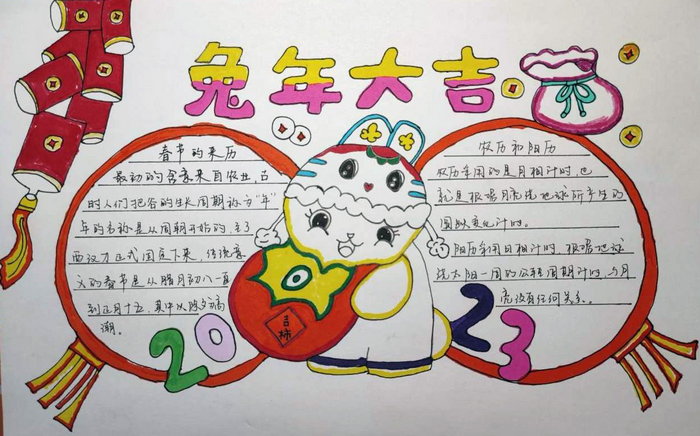 兔年大吉
春节的来历
最初的含意来自农业,古
时人们把谷的生长周期称为“年”
年的名称是从周朝开始的,到了
西汉才正式固定下来,传统意
义的春节是从腊月初八一直
到正月十五,其中以除夕为高
潮。
农历和阳历
农历采用的是月相计时,也
就是根据月亮绕地球所产生的
圆缺变化计时。
阳历采用日相计时,根据地球
绕太阳一周的公转周期计时,与月
亮没有任何关系。
吉柿
2023